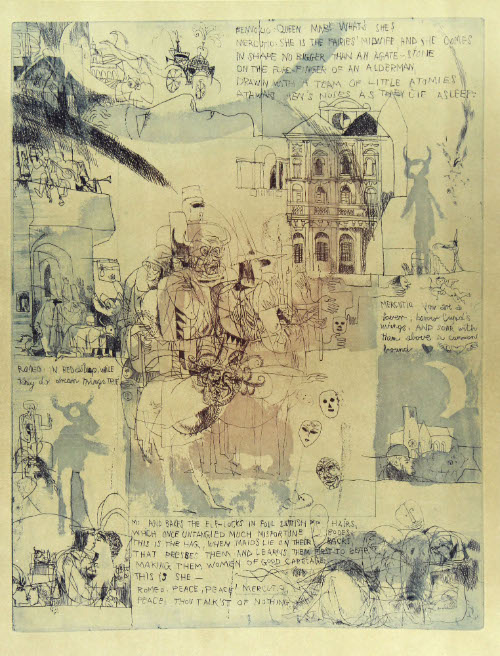 QUEEN MAB WHATS SHE
MERCUTIO: SHE IS THE FAIRIES' MIDWIFE AND SHE COMES
IN SHAPE NO BIGGER THAN AN AGATE-STONE
ON THE FORE-FINGER OF AN ALDERMAN
DRAWN WITH A TEAM OF LITTLE ATOMIES
MEN'S NOSES AS THEY LIE ASLEEP
MERCUTIO you are a
lover, borrow Cupid's
wings, AND SOAR with
them above a common
bound
ROMEO IN BED asleep, WHILE
they do dream things TRUE
AND BAKES THE ELF-LOCKS IN FOUL HAIRS,
WHICH ONCE UNTANGLED MUCH MISFORTUNE BODES
THIS IS THE HAG, WHEN MAIDS LIE ON THEIR BACKS
THAT PRESSES THEM AND LEARNS THEM FIRST TO BEAR
MAKING THEM WOMEN OF GOOD CARRIAGE
THIS IS SHE —
ROMEO: PEACE, PEACE, MERCUTIO
PEACE, THOU TALK'ST OF NOTHING